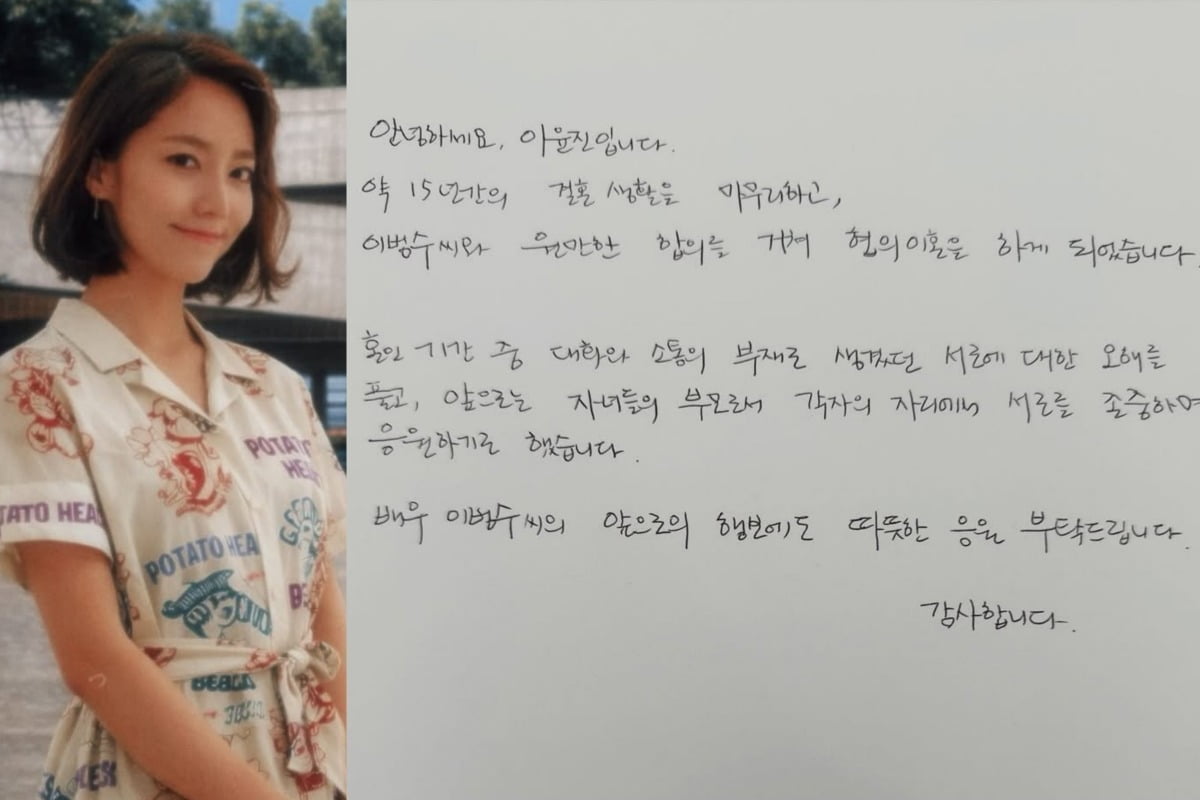 안녕하세요, 이윤진입니다.
약 15년간의 결혼 생활을 마무리하고,
이범수씨와 원만한 합의를 거쳐 협의이혼을 하게 되었습니다.
혼인 기간 중 대화와 소통의 부재로 생겼던 서로에 대한 오해를
풀고, 앞으로는 자녀들의 부모로서 각자의 자리에서 서로를 존중하며
응원하기로 했습니다.
배우 이범수씨의 앞으로의 행보에도 따뜻한 응원 부탁드립니다.
감사합니다.
POTATO
HEA
TATO HEA
POTATO HEA
BEACH